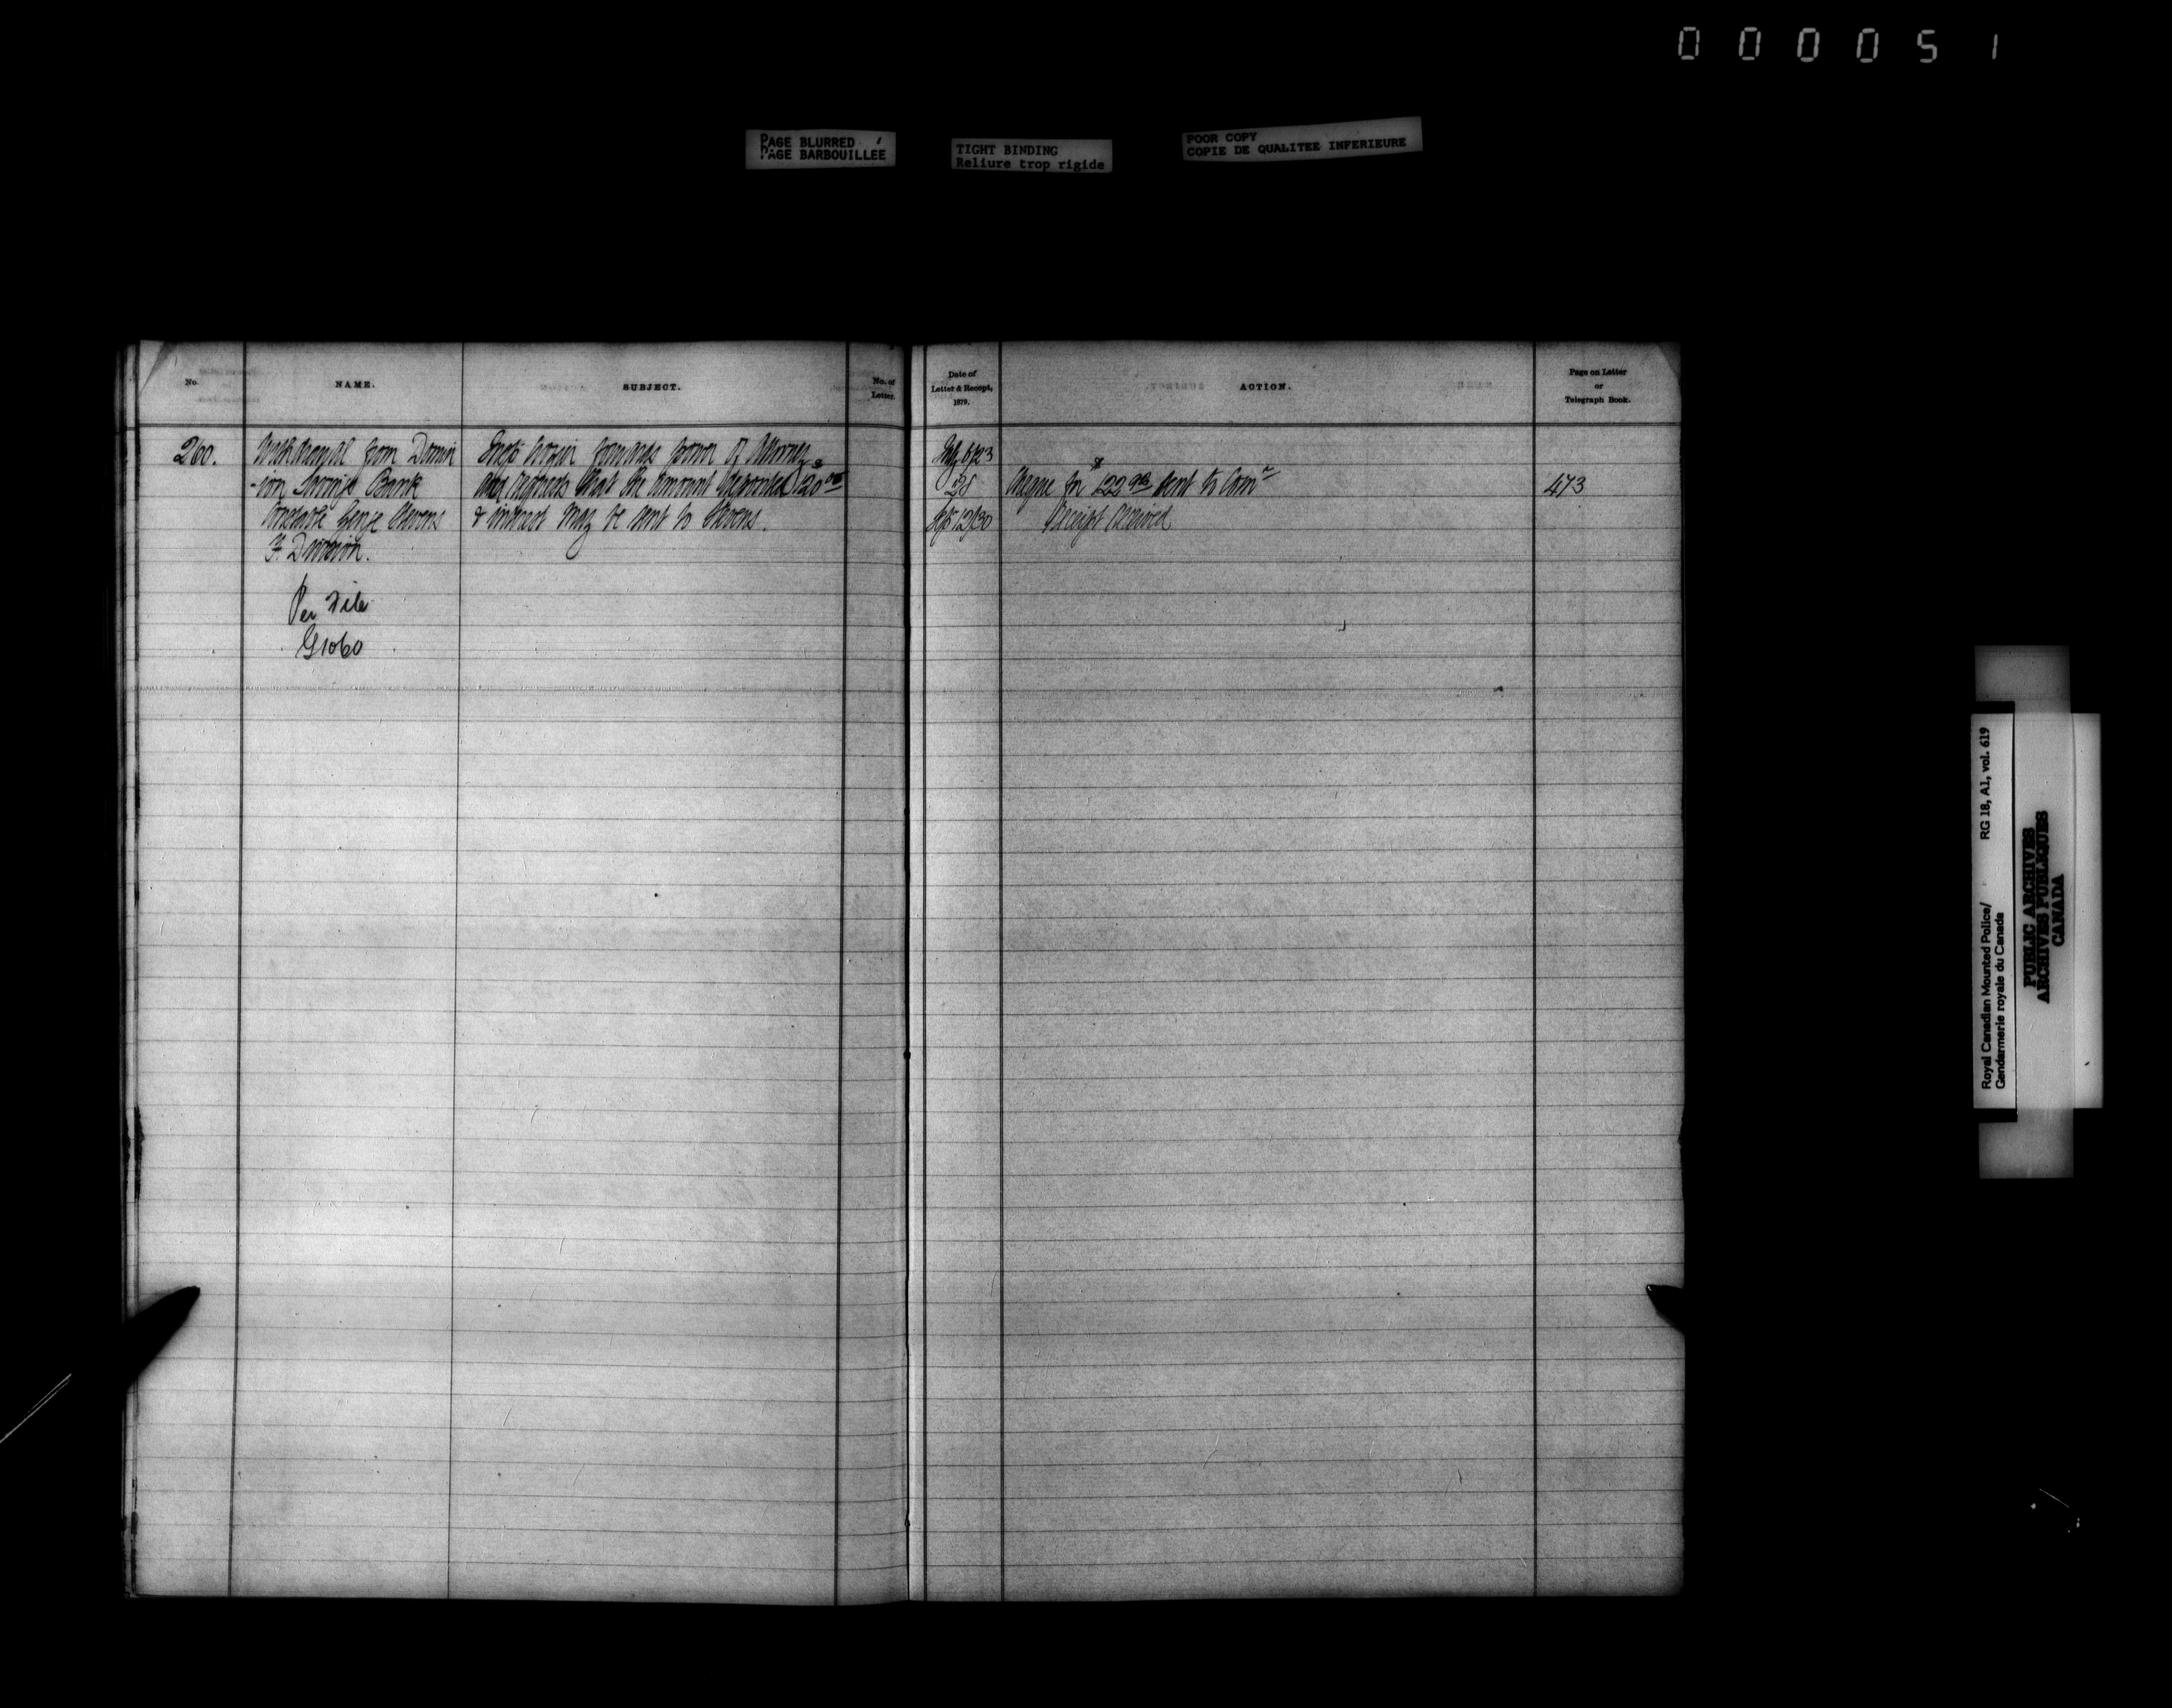 000051
PAGE BLURRED
PAGE BARBOUILLEE
TIGHT BINDING
Reliure trop rigide
POOR COPY
COPIE DE QUALITEE INFERIEURE
No.
NAME.
SUBJECT.
No. of
Letter.
Date of
Letter & Receipt,
1879.
ACTION.
Page on Letter
or
Telegraph Book.
260.
Withdrawal from Domin
-ion Savings Bank
Constable George Stevens
F. Division.
Per File
G1060
forwards power of Attorney
and requests that the amount deposited $120.00
& interest may be sent to Stevens.
28
Sept 12/30
Cheque for $122 sent to Comr
Receipt Received
473
Royal Canadian Mounted Police/ RG 18, A1, vol. 619
Gendarmerie royale du Canada
PUBLIC ARCHIVES
ARCHIVES PUBLIQUES
CANADA